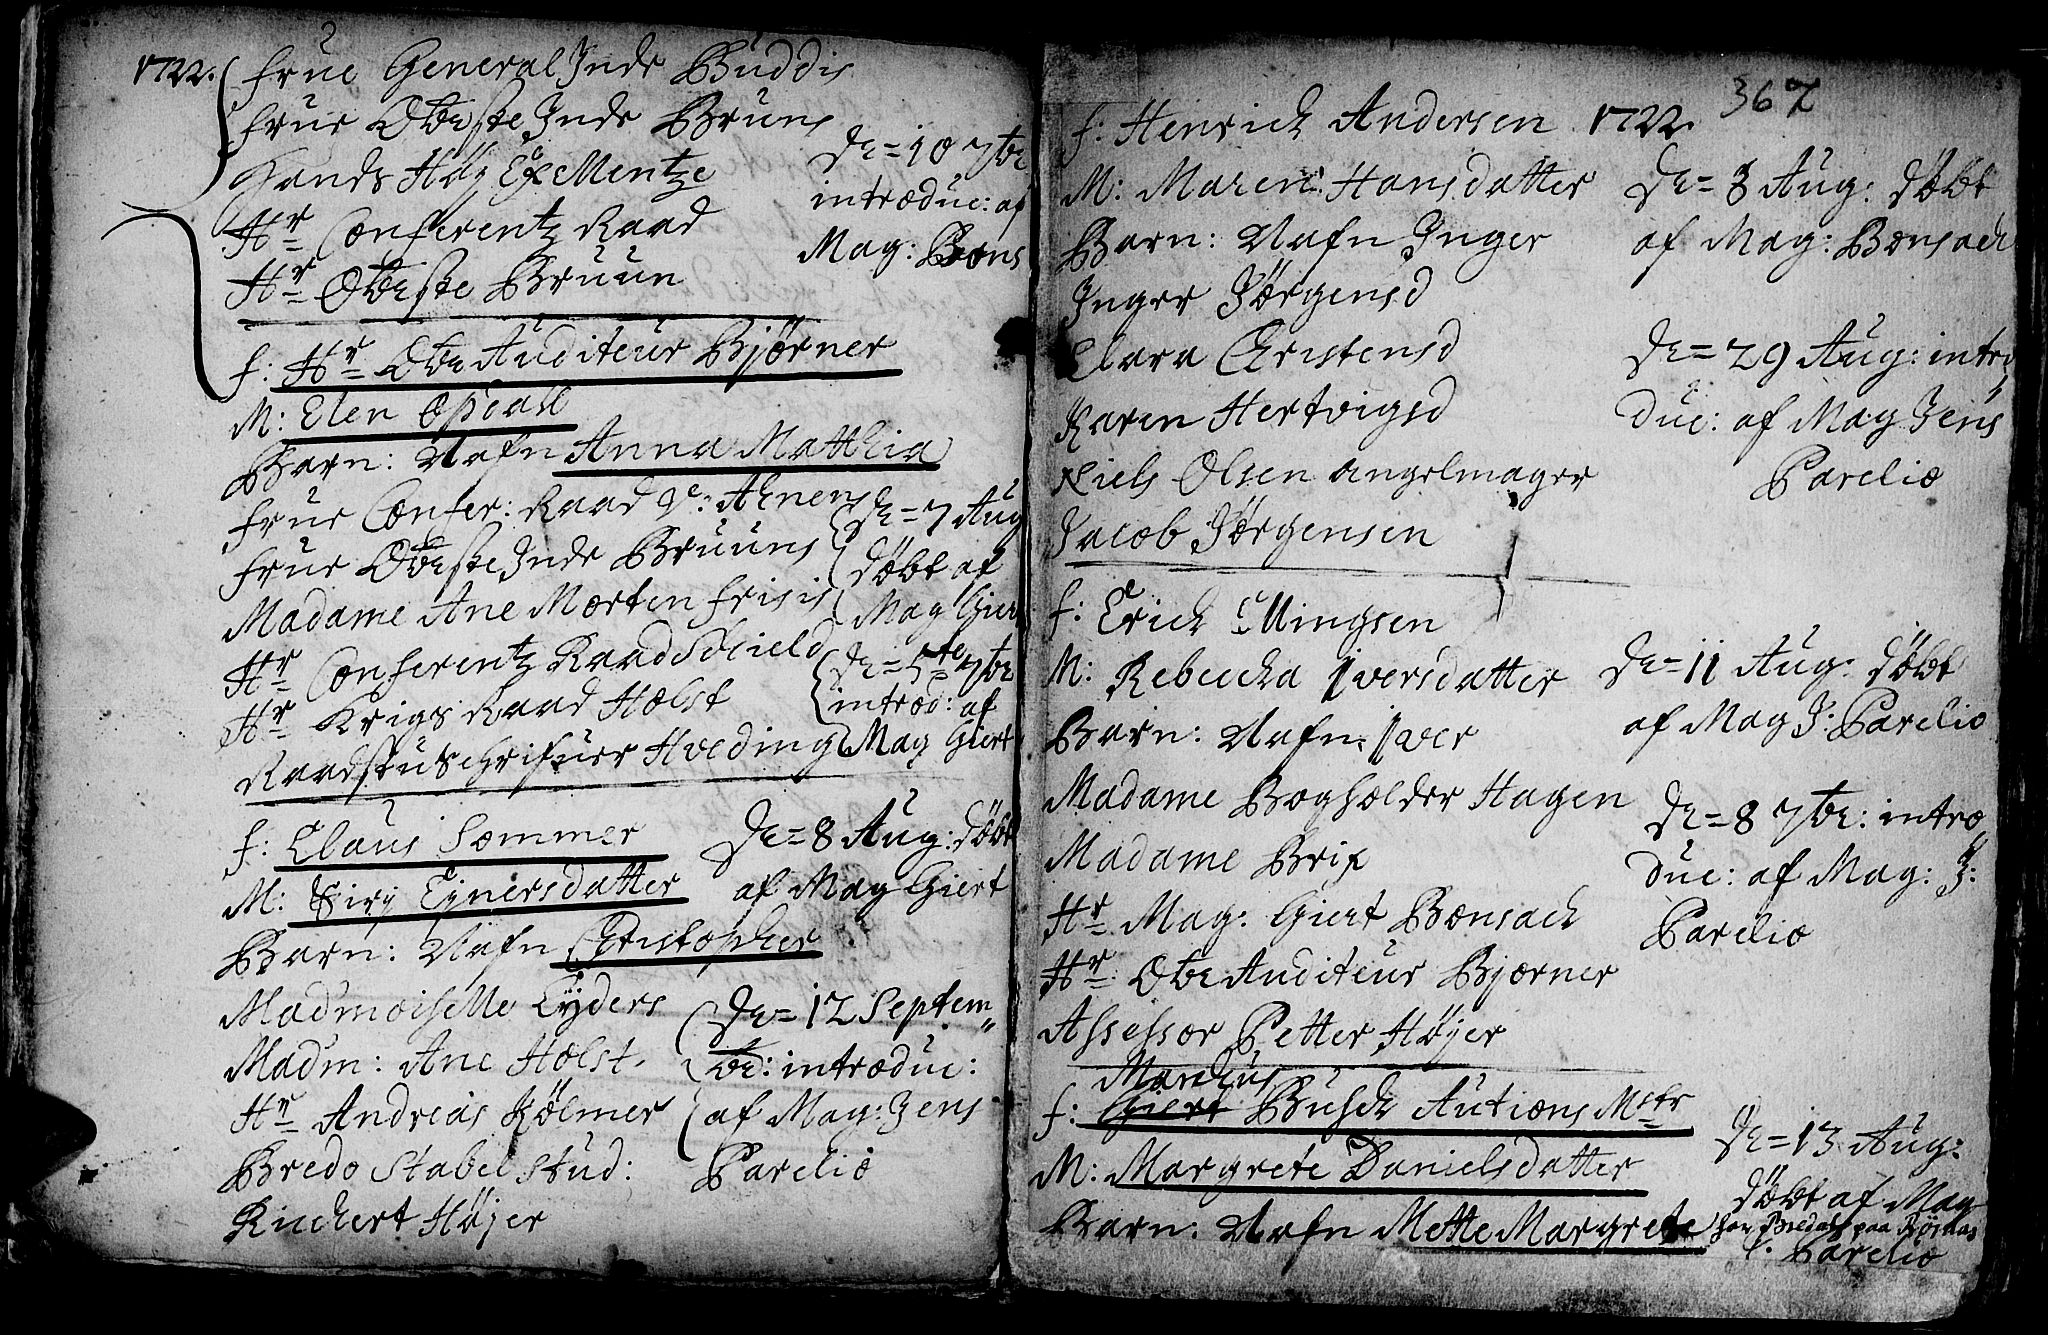 1722.
frue General Inde Büddis
frue Obr steinde Brüns
Hands Høy Ex Mentze
Hr Conferentz Raad
Hr Obr ste Brüun
De= 10 7br
introduc: af
Mag: Bons
f: Hr Obr Auditeur Bjørner
M: Elen Opdall
Barn: Nafn Anna Matthia
frue Confer: Raad De: Ahnens
frue Obr ste Inde Brüuns
Madame Ane Morten frisis
Hr Conferentz Raad Schield
Hr Krigs Raad Holst
Raadstu Schrifuer Hveding
De= 7 Aug
døbt af
Mag Giert
De= 5te 7br
introd: af
Mag Giert
f: Claus Sommer
M: Siri Ejnersdatter
Barn: Nafn Christopher
De= 8 Aug: døbt
af Mag Giert
Madmoiselle Eyders
Madm: Ane Holst
Hr Andreas Kølmer
Bredo Stabel stud:
Richert Højer
De= 12 Septem„
br: introduc:
af Mag: Jens
Parelio
367
f: Henrich Andersen 1722.
M: Maren Hansdatter
Barn: Nafn Inger
Inger Jørgensd
Clara Christensd
Karen Hertvigsd
Niels Olsen angelmager
Jacob Jørgensen
De= 3 Aug: døbt
af Mag: Bonsach
De= 29 Aug: intro
duc: af Mag Jens
Parelio
f: Erich Ellingsen
M: Rebecka Iversdatter
Barn: Nafn: Iver
Madame Bogholder Hagen
Madame Brix
Hr Mag: Giert Bonsach
Hr Obr Auditeur Bjørner
Assessor Petter Højer
De= 11 Aug: døbt
af Mag J: Parelio
De= 8 7br: intro„
duc: af Mag: J:
Parelio
Marchus
f: Giert Busch Autions Mstr
M: Margrete Danielsdatter
Barn: Nafn Mette Margrete
De= 13 Aug:
døbt af Mag
Parelio